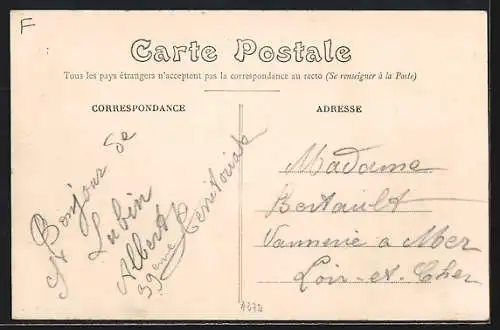 F
Carte Postale
Tous les pays étrangers n'acceptent pas la correspondance au recto (Se renseigner à la Poste)
CORRESPONDANCE
Bonjour de
St Lubin
Albert
39ème Territoriale
ADRESSE
Madame
Bertault
Vannerie a Mer
Loir-et-Cher